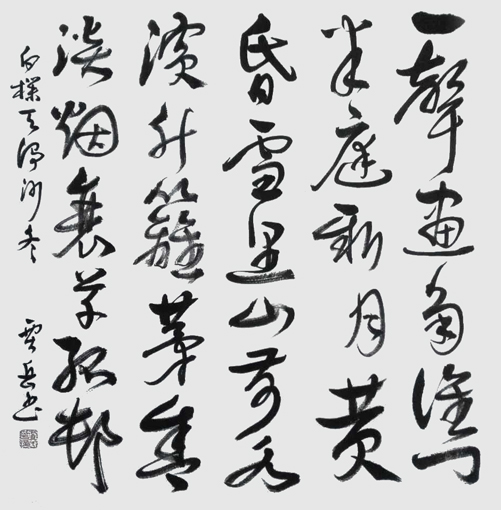 一聲畫角譙門
半庭新月黄
昏雪里山前水
濱竹籬茅舍
淡烟衰草孤邨
白樸天淨沙冬